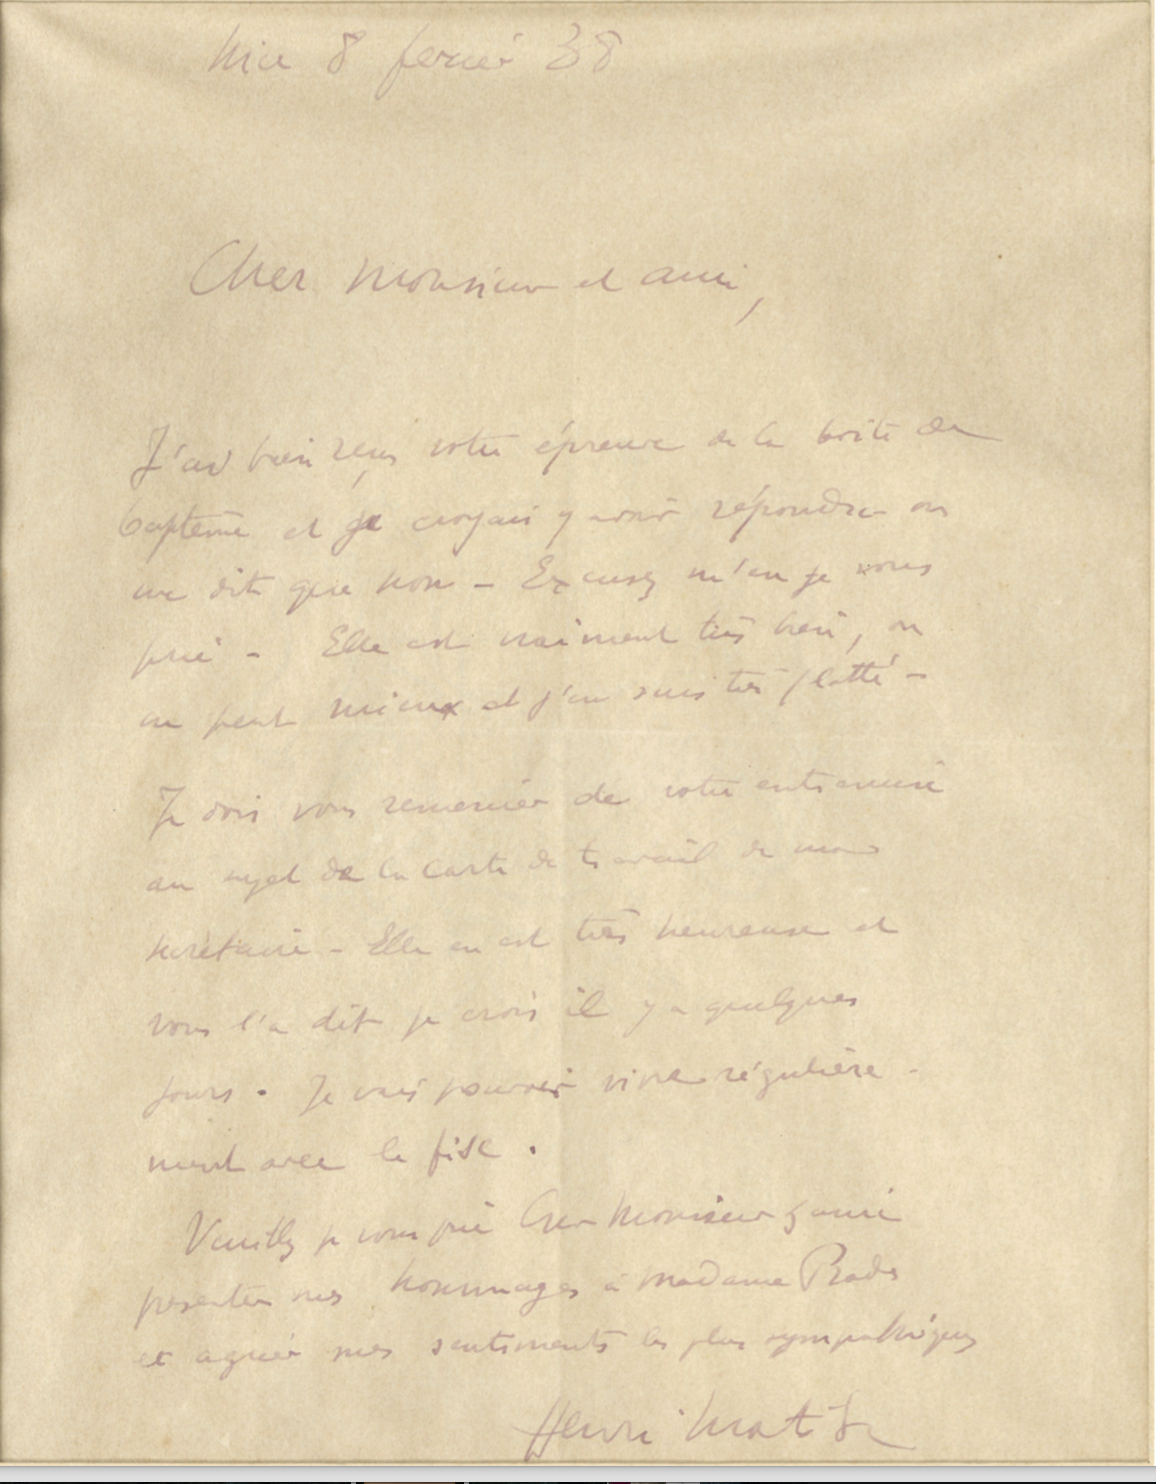 Nice 8 fevrier 38
Cher Monsieur et ami,
J'ai bien reçu votre épreuve de la boite de
bapteme et je croyais y avoir répondre on
me dit que non – Excusez m'en je vous
prie – Elle est vraiment très bien, on
ne peut mieux et j'en suis très flatté –
Je dois vous remercier de votre entremise
au sujet de la carte de travail de ma
secretaire – Elle en est très heureuse et
vous l'a dit je crois il y a quelques
jours. Je vais pouvoir vivre régulière-
ment avec le fisc.
Veuillez je vous prie Cher Monsieur & ami
presenter mes hommages à Madame
et agréer mes sentiments les plus sympathiques
Henri Matisse